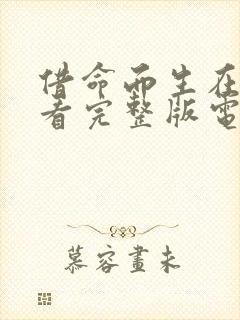 借命而生在
看完整版電
慕容畫未